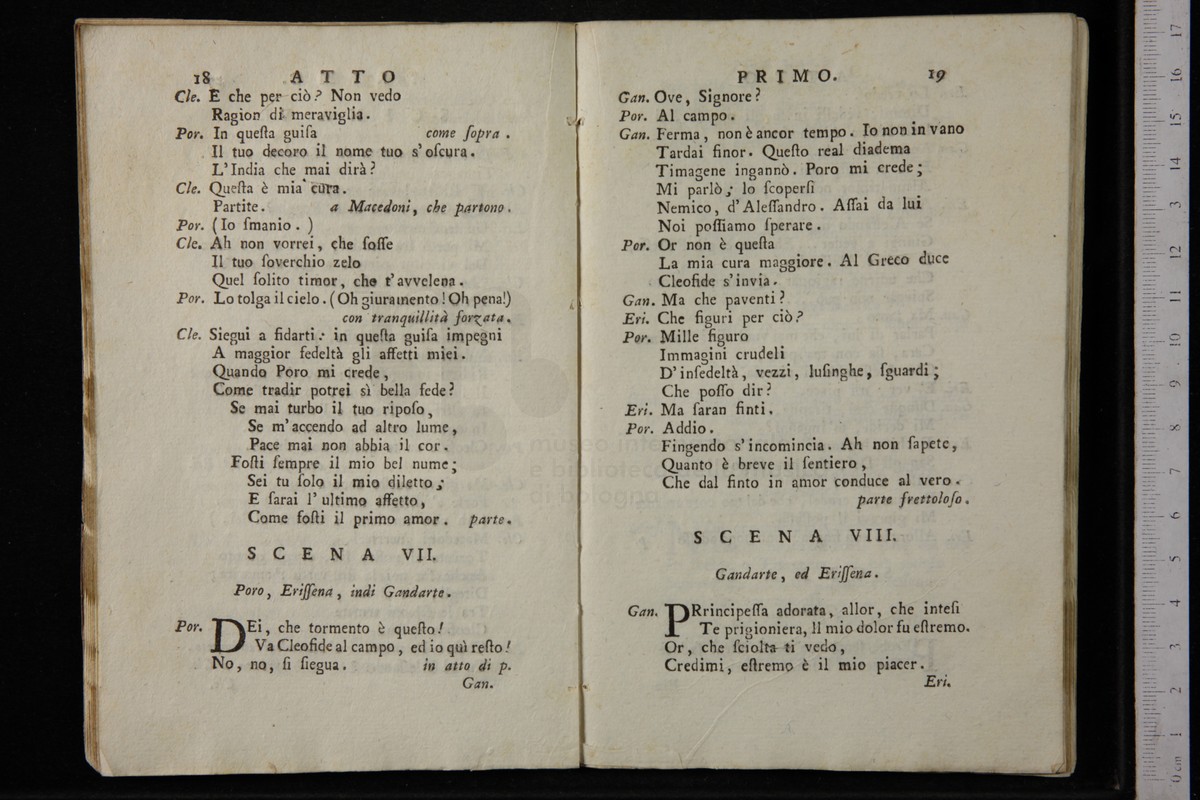 18 ATTO
Cle. E che per ciò? Non vedo
Ragion di meraviglia.
Por. In queſta guiſa come ſopra.
Il tuo decoro il nome tuo s'oſcura.
L'India che mai dirà?
Cle. Queſta è mia cura.
Partite. a Macedoni, che partono.
Por. (Io ſmanio.)
Cle. Ah non vorrei, che foſſe
Il tuo ſoverchio zelo
Quel ſolito timor, che t'avvelena.
Por. Lo tolga il cielo. (Oh giuramento! Oh pena!)
con tranquillità forzata.
Cle. Siegui a fidarti: in queſta guiſa impegni
A maggior fedeltà gli affetti miei.
Quando Poro mi crede,
Come tradir potrei sì bella fede?
Se mai turbo il tuo ripoſo,
Se m'accendo ad altro lume,
Pace mai non abbia il cor.
Foſti ſempre il mio bel nume;
Sei tu ſolo il mio diletto;
E ſarai l'ultimo affetto,
Come foſti il primo amor. parte.
SCENA VII.
Poro, Eriſſena, indi Gandarte.
Por. DEi, che tormento è queſto!
Va Cleofide al campo, ed io quì reſto!
No, no, ſi ſiegua. in atto di p.
Gan.
PRIMO. 19
Gan. Ove, Signore?
Por. Al campo.
Gan. Ferma, non è ancor tempo. Io non in vano
Tardai finor. Queſto real diadema
Timagene ingannò. Poro mi crede;
Mi parlò; lo ſcoperſi
Nemico, d'Aleſſandro. Aſſai da lui
Noi poſſiamo ſperare.
Por. Or non è queſta
La mia cura maggiore. Al Greco duce
Cleofide s'invia.
Gan. Ma che paventi?
Eri. Che figuri per ciò?
Por. Mille figuro
Immagini crudeli
D'infedeltà, vezzi, luſinghe, ſguardi;
Che poſſo dir?
Eri. Ma ſaran finti.
Por. Addio.
Fingendo s'incomincia. Ah non ſapete,
Quanto è breve il ſentiero,
Che dal finto in amor conduce al vero.
parte frettoloſo.
SCENA VIII.
Gandarte, ed Eriſſena.
Gan. PRrincipeſſa adorata, allor, che inteſi
Te prigioniera, Il mio dolor fu eſtremo.
Or, che ſciolta ti vedo,
Credimi, eſtremo è il mio piacer.
Eri.